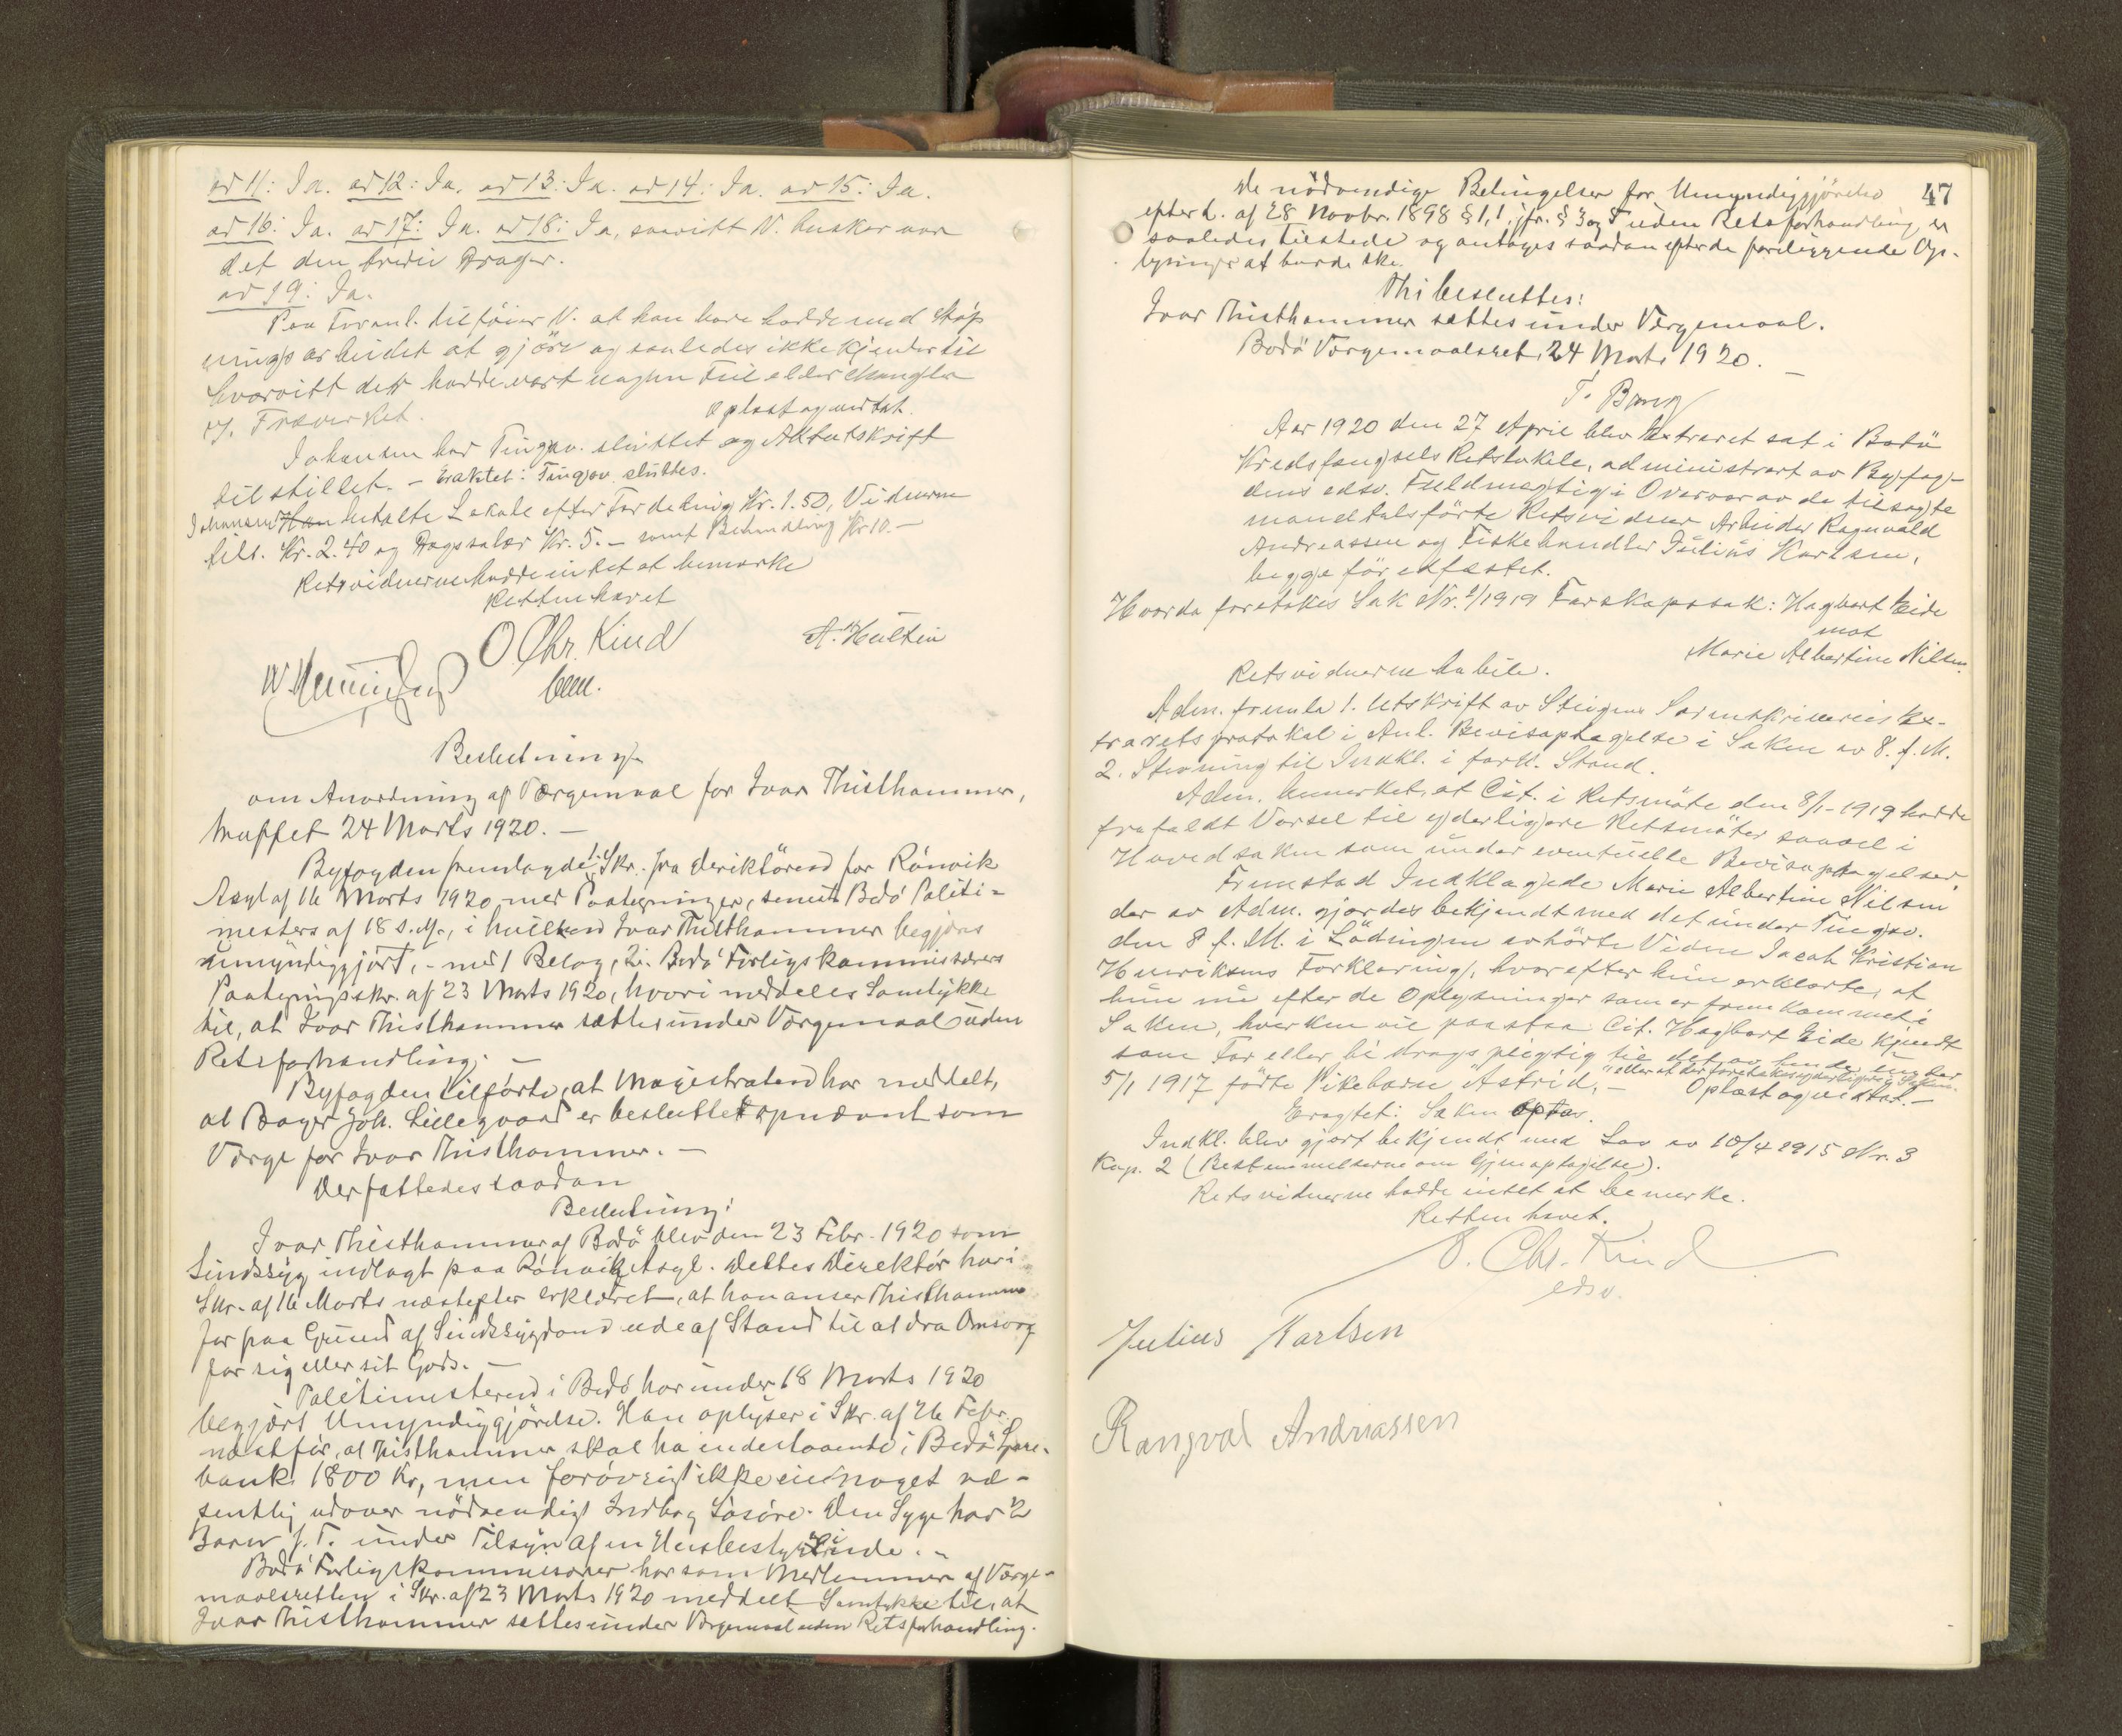 ad 11: Ja. ad 12: Ja. ad 13: Ja. ad 14: Ja. ad 15: Ja.
ad 16: Ja. ad 17: Ja. ad 18: Ja, saavitt V. husker var
det den tredie Prager.
ad 19: Ja.
Paa Foranl. tilføier V. at han bare hadde med Støp
nings arbeidet at gjöre og saaledes ikke kjender til
hvorvitt det hadde vært nogen Feil eller Mangler
v. Træverket.
Oplæst og vedtat.
Johansen har Tingsv. sluttet og Aktutskrift
tilstillet. – Eraktet: Tingsv. sluttes.
Johansen betalte Lokale efter Fordeling Kr. 1.50, Vidnerne
tils. Kr. 2.40 og Dagssalær Kr. 5.– samt Behandling Kr 10.–
Retsvidnerne hadde intet at bemærke
Retten hævet
O. Chr. Kind
A. Hultin
Beslutning
om Anordning af Værgemaal for Ivar Thisthammer,
truffet 24 Marts 1920. –
Byfogden fremlagde: 1: Skr. fra Direktören for Rönvik
Asyl af 16 Marts 1920 med Paategninger, senest Bodö Politi-
mesters af 18 s. M., i hvilken Ivar Thisthammer begjæres
umyndiggjort, – med 1 Belag, 2: Bodö Forligskommissærers
Paategningsskr. af 23 Marts 1920, hvori meddeles Samtykke
til, at Ivar Thisthammer sættes under Værgemaal uden
Retsforhandling. –
Byfogden tilförte, at Magistraten har meddelt,
at Bager Joh. Lillegaard er besluttet opnævnt som
Værge for Ivar Thisthammer. –
Der fattedes saadan
Beslutning:
Ivar Thisthammer af Bodö blev den 23 Febr. 1920 som
Sindssyg indlagt paa Rönvik Asyl. Dettes Direktör har i
Skr. af 16 Marts næstefter erklæret, at han anser Thisthammer
for paa Grund af Sindssygdom ude af Stand til at dra Omsorg
for sig eller sit Gods. –
Politimesteren i Bodö har under 18 Marts 1920
begjært Umyndiggjörelse. Han oplyser i Skr. af 26 Febr.
næstför, at Thisthammer skal ha indestaaende i Bodö Spare-
bank 1800 Kr, men forövrigt ikke eier noget væ-
sentlig udover nödvendigt Indbo og Lösöre. Den Syge har 2
Barn f. T. under Tilsyn af en Husbestyrerinde. –
Bodö Forligskommissærer har som Medlemmer af Værge-
maalsretten i Skr. af 23 Marts 1920 meddelt Samtykke til, at
Ivar Thisthammer settes under Værgemaal uden Retsforhandling.
47
De nödvendige Betingelser for Umyndiggjörelse
efter L. af 28 Novbr. 1898 § 1,1 jfr. § 3 og 5 uden Retsforhandling er
saaledes tilstede og antages saadan efter de foreliggende Op-
lysninger at burde ske.
Thi besluttes:
Ivar Thisthammer sættes under Værgemaal.
Bodö Værgemaalsret, 24 Marts 1920. –
Aar 1920 den 27 April blev Extraret sat i Bodö
Kredsfængsels Retslokale, administrert av Byfog-
dens edsv. Fuldmægtig i Overvær av de tilsagte
mandtalsförte Retsvidner Arbeider Ragnvald
Andreassen og Fiskehandler Julius Karlsen,
begge för edfæstet.
Hvorda foretokes Sak Nr. 1/1919 Farskapssak: Hagbart Eide
mot
Marie Albertine Nilsen.
Retsvidnerne habile.
Adm. fremla 1. Utskrift av Steigens Sorenskriveries Ex-
traretsprotokol i Anl. Bevisoptagelse i Saken av 8. f. M.
2. Stevning til Indkl. i fork. Stand.
Adm. bemerket, at Cit. i Retsmöte den 8/1-1919 hadde
frafaldt Varsel til yderligere Retsmöter saavel i
Hovedsaken som under eventuelle Bevisoptagelser.
Fremstod Indklagede Marie Albertine Nilsen
der av Adm. gjordes bekjendt med det under Tingsv.
den 8 f. M. i Lödingen avhörte Vidne Jacob Kristian
Henriksens Forklaring, hvorefter hun erklærte, at
hun nu efter de Oplysninger som er fremkommet i
Saken, hverken vil paastaa Cit. Hagbart Eide kjendt
som Far eller bidragspligtig til det av hende under
5/1 1917 födte Pikebarn "Astrid", – eller at der foretakes yderligere i Saken.
Oplæst og vedtat. –
Eragtet: Saken optas.
Indkl. blev gjort bekjendt med Lov av 10/4 1915 Nr. 3
Kap. 2 (Bestemmelserne om Gjenoptagelse).
Retsvidnerne hadde intet at bemerke.
Retten hævet.
O. Chr. Kind
edsv.
Julius Karlsen
Rangval Andriassen